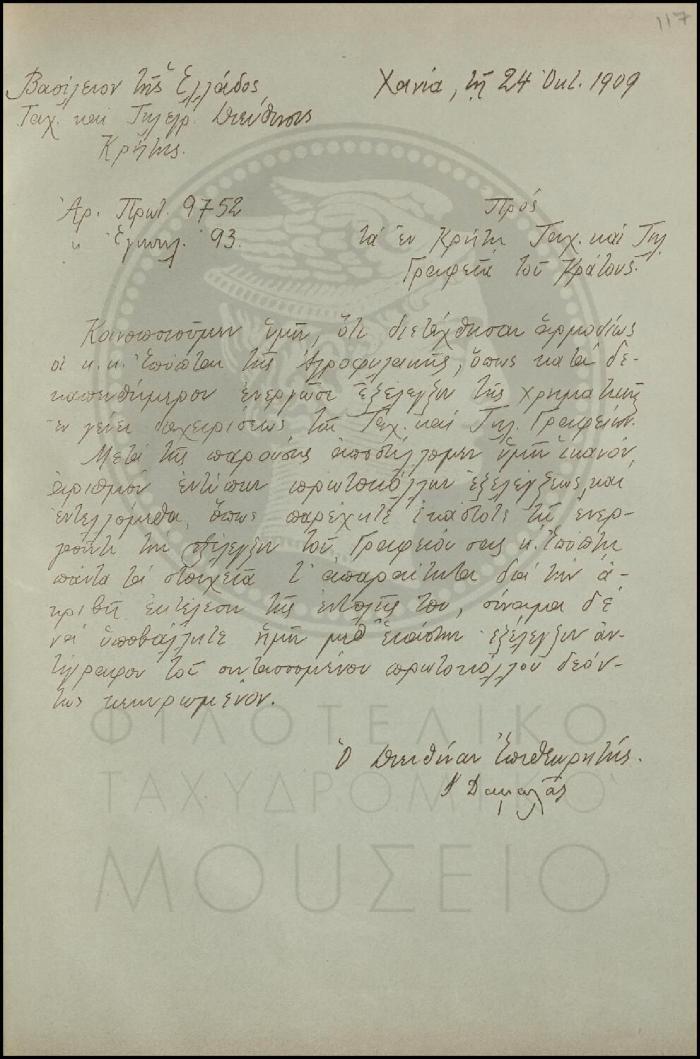 117
Βασίλειον τῆς Ἑλλάδος
Ταχ. καὶ Τηλεγρ. Διεύθυνσις
Κρήτης.
Χανία, τῇ 24 Ὀκτ. 1909
Ἀρ. Πρωτ. 9752
" Ἐγκυκλ. 93.
Πρὸς
τὰ ἐν Κρήτῃ Ταχ. καὶ Τηλ.
Γραφεῖα τοῦ Κράτους.
Κοινοποιοῦμεν ὑμῖν, ὅτι διετάχθησαν ἁρμοδίως
οἱ κ. κ. Ἐπόπται τῆς Ἀγροφυλακῆς, ὅπως κατὰ δε-
καπενθήμερον ἐνεργῶσι ἐξέλεγξιν τῆς χρηματικῆς
ἐν γένει διαχειρίσεως τῶν Ταχ. καὶ Τηλ. Γραφείων.
Μετὰ τῆς παρούσης ἀποστέλλομεν ὑμῖν ἱκανὸν
ἀριθμὸν ἐντύπων πρωτοκόλλων ἐξελέγξεως, καὶ
ἐντελλόμεθα, ὅπως παρέχητε ἑκάστοτε τῷ ἐνερ-
γοῦντι τὴν ἐξέλεγξιν τοῦ Γραφείου σας κ. Ἐπόπτῃ
πάντα τὰ στοιχεῖα τ' ἀπαραίτητα διὰ τὴν ἀ-
κριβῆ ἐκτέλεσιν τῆς ἐντολῆς του, σύναμα δὲ
νὰ ὑποβάλλητε ἡμῖν μεθ' ἑκάστην ἐξέλεγξιν ἀν-
τίγραφον τοῦ συντασσομένου πρωτοκόλλου δεόν-
τως κεκυρωμένον.
Ὁ Διευθύνων Ἐπιθεωρητής.
Δαμαλᾶς
ΦΙΛΟΤΕΛΙΚΟ
ΤΑΧΥΔΡΟΜΙΚΟ
ΜΟΥΣΕΙΟ